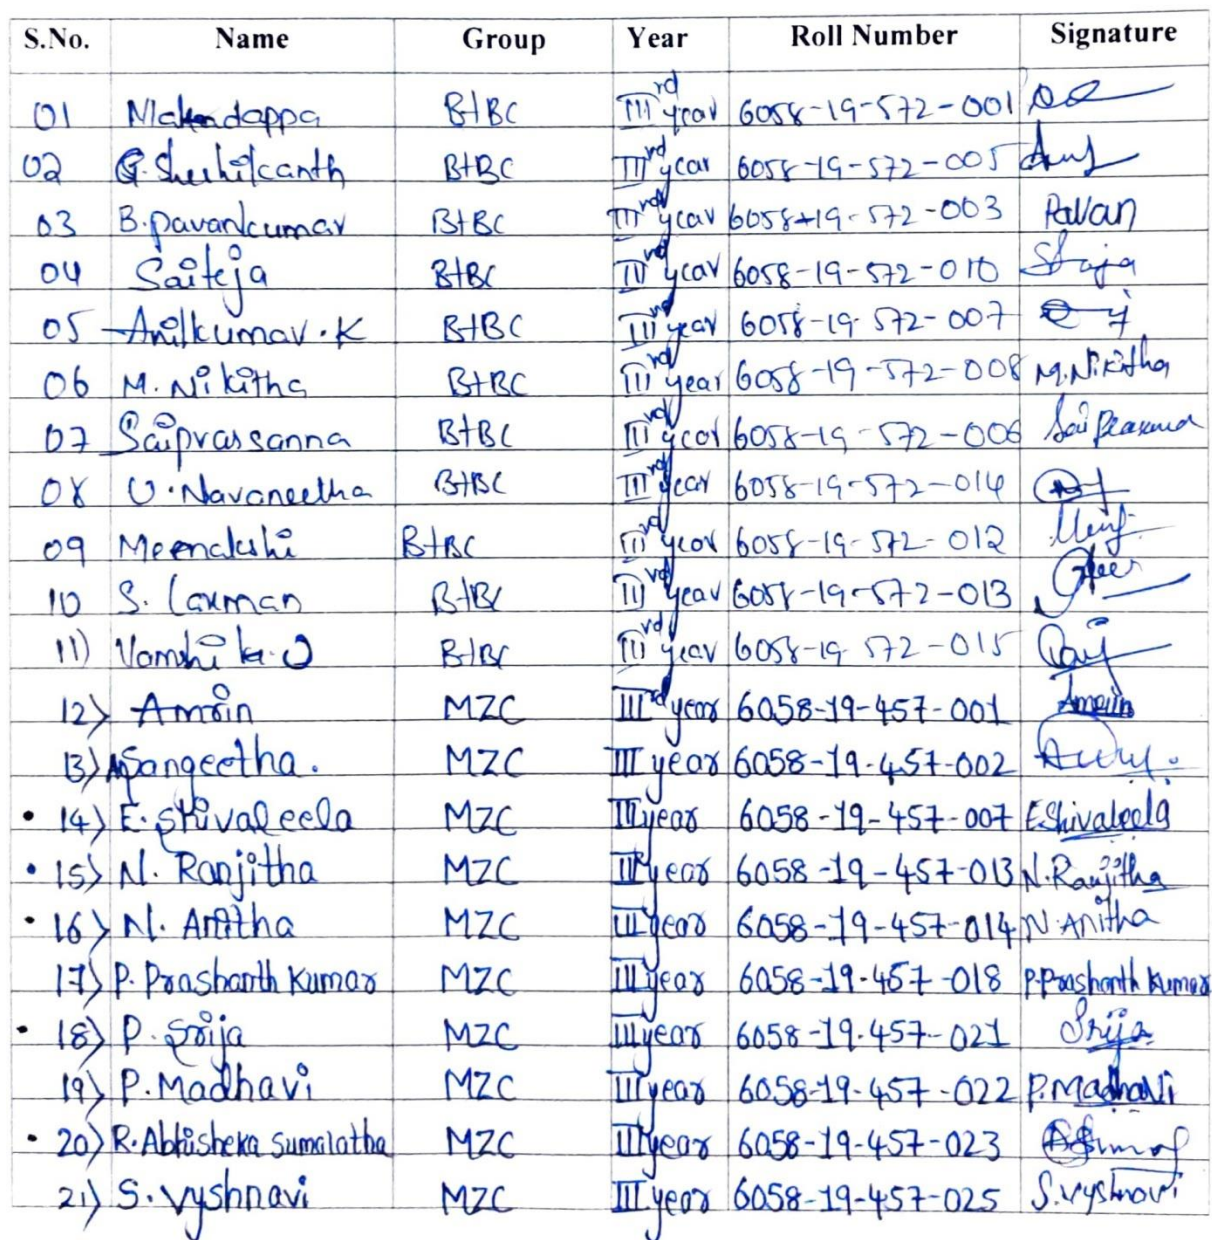 S.No. Name Group Year Roll Number Signature
01 BtBC IIIrd year 6058-19-572-001
02 G. Shashikanth BtBC IIIrd year 6058-19-572-005
03 B.pavankumar BtBC IIIrd year 6058-19-572-003 Pavan
04 Saiteja BtBC IIIrd year 6058-19-572-010
05 Anilkumar.K BtBC IIIrd year 6058-19-572-007
06 M. Nikitha BtBC IIIrd year 6058-19-572-008 M.Nikitha
07 Saiprassanna BtBC IIIrd year 6058-19-572-006
08 U.Navaneetha BtBC IIIrd year 6058-19-572-014
09 Meenakshi BtBC IIIrd year 6058-19-572-012
10 S. Laxman BtBC IIIrd year 6058-19-572-013
11) Vamshi k.U BtBC IIIrd year 6058-19-572-015
12) Amrin MZC IIIrd year 6058-19-457-001 Amrin
13) Sangeetha. MZC III year 6058-19-457-002
• 14) E. Shivaleela MZC III year 6058-19-457-007 E.Shivaleela
• 15) N. Ranjitha MZC III year 6058-19-457-013 N.Ranjitha
• 16) N. Anitha MZC III year 6058-19-457-014 N.Anitha
17) P. Prashanth Kumar MZC III year 6058-19-457-018 P.Prashanth Kumar
• 18) P. Srija MZC III year 6058-19-457-021 Srija
19) P.Madhavi MZC III year 6058-19-457-022 P.Madhavi
• 20) R.Abhisheka Sumalatha MZC III year 6058-19-457-023
21) S. Vyshnavi MZC III year 6058-19-457-025 S.Vyshnavi